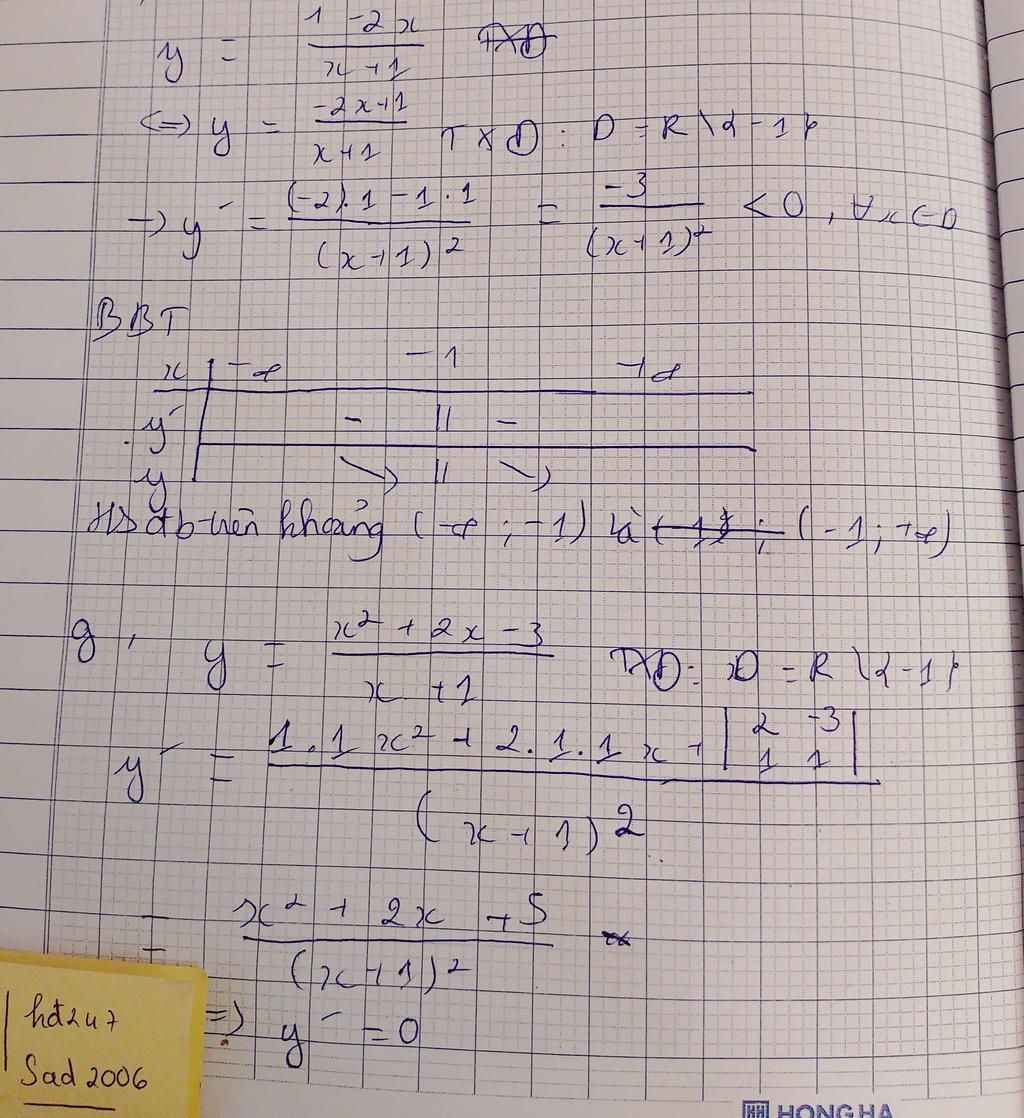 y = (1 - 2x)/(x + 1)
<=> y = (-2x+1)/(x+1) TXD: D = R \ {-1}
-> y' = ((-2).1 - 1.1)/(x+1)² = -3/(x+1)² < 0, ∀x ∈ D
BBT
x | -∞ -1 +∞
y' | - || -
y | ↘ || ↘
khoảng (-∞; -1) và (-1; +∞)
g, y = (x² + 2x - 3)/(x + 1) TXD: D = R \ {-1}
y' = (1.1x² + 2.1.1x + |2 -3; 1 1|)/(x+1)²
= (x² + 2x + 5)/(x+1)²
=> y' = 0
hđ247
Sad 2006
HH HONG HA